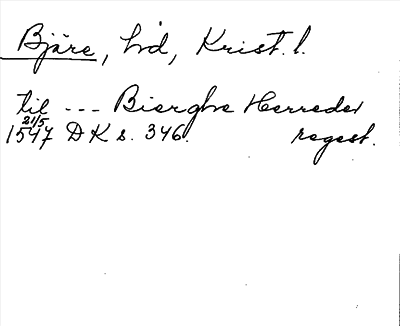 Bjäre, hd, Krist. l.
til --- Bierghe Herreder
21/5
1547 DK s. 346. regest.